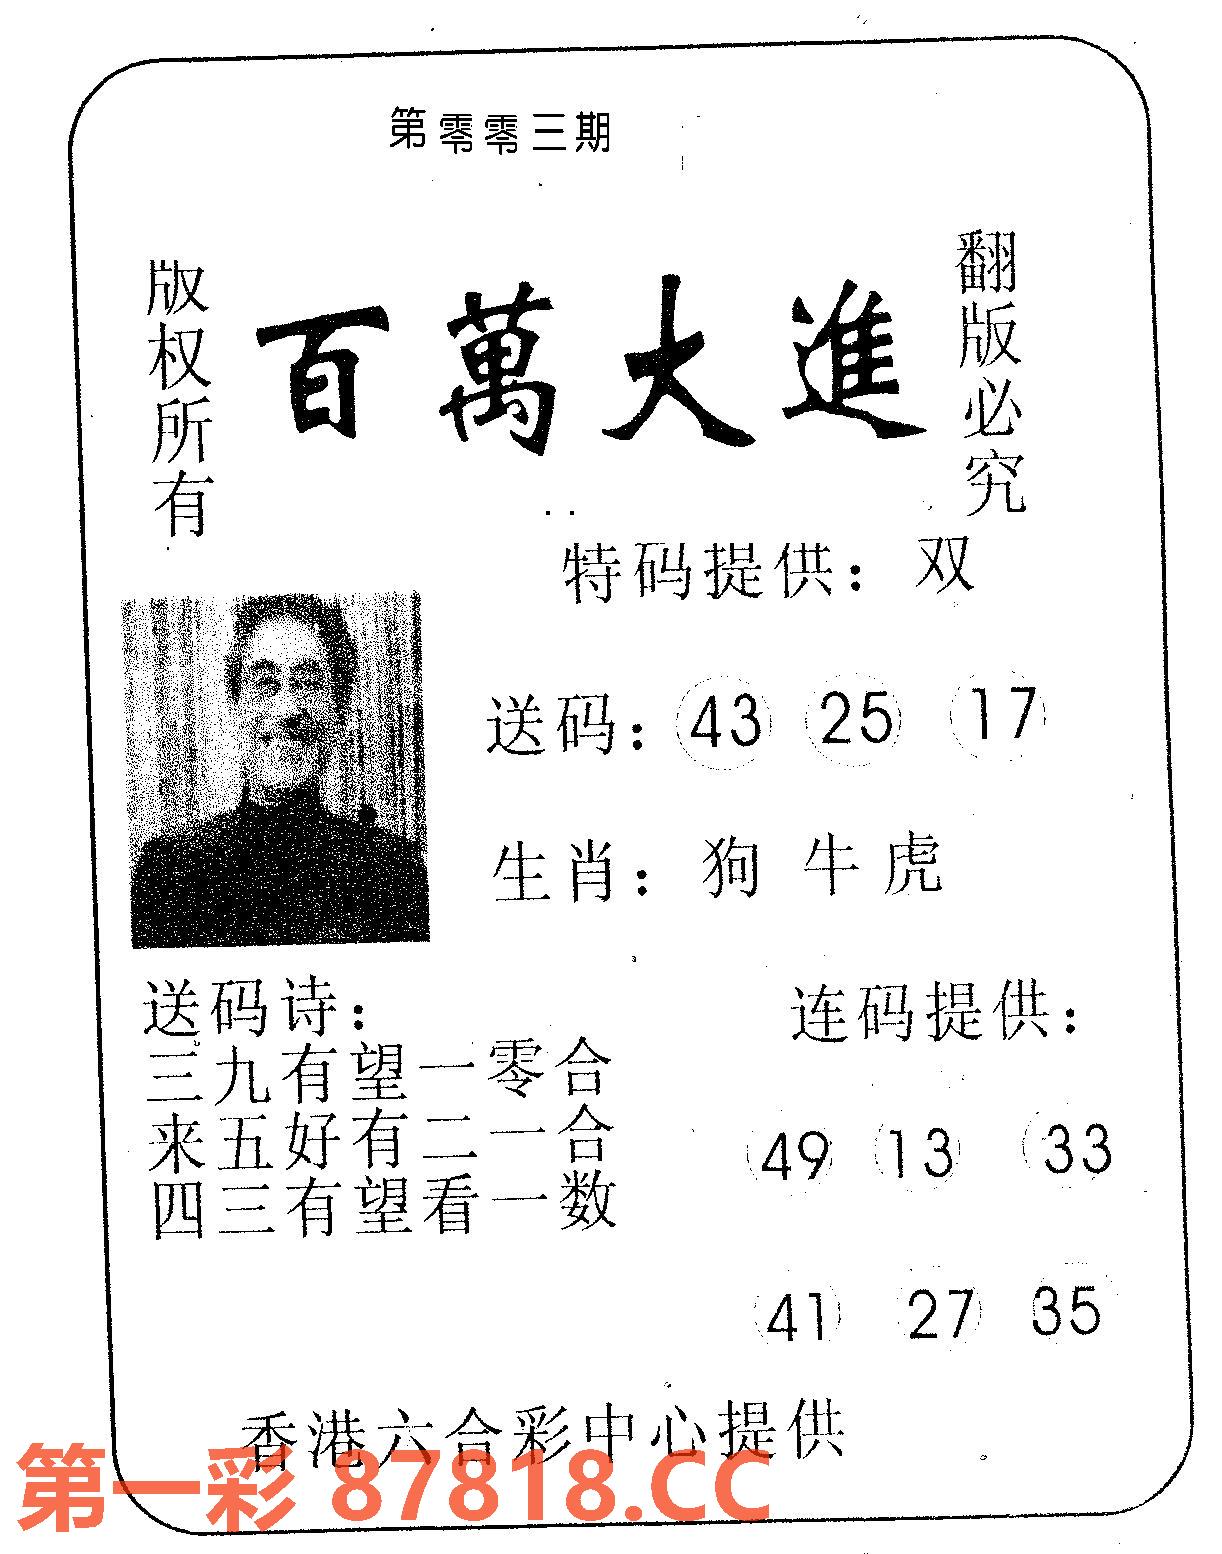 第零零三期
版权所有
百萬大進
翻版必究
特码提供：双
送码：43 25 17
生肖：狗 牛 虎
送码诗：
三九有望一零合
来五好有二一合
四三有望看一数
连码提供：
49 13 33
41 27 35
香港六合彩中心提供
第一彩 87818.CC